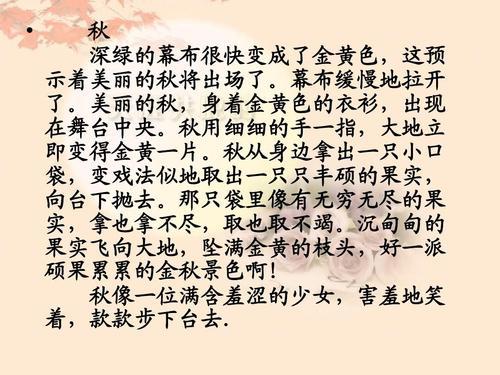 • 秋
深绿的幕布很快变成了金黄色，这预
示着美丽的秋将出场了。幕布缓慢地拉开
了。美丽的秋，身着金黄色的衣衫，出现
在舞台中央。秋用细细的手一指，大地立
即变得金黄一片。秋从身边拿出一只小口
袋，变戏法似地取出一只只丰硕的果实，
向台下抛去。那只袋里像有无穷无尽的果
实，拿也拿不尽，取也取不竭。沉甸甸的
果实飞向大地，坠满金黄的枝头，好一派
硕果累累的金秋景色啊！
秋像一位满含羞涩的少女，害羞地笑
着，款款步下台去.